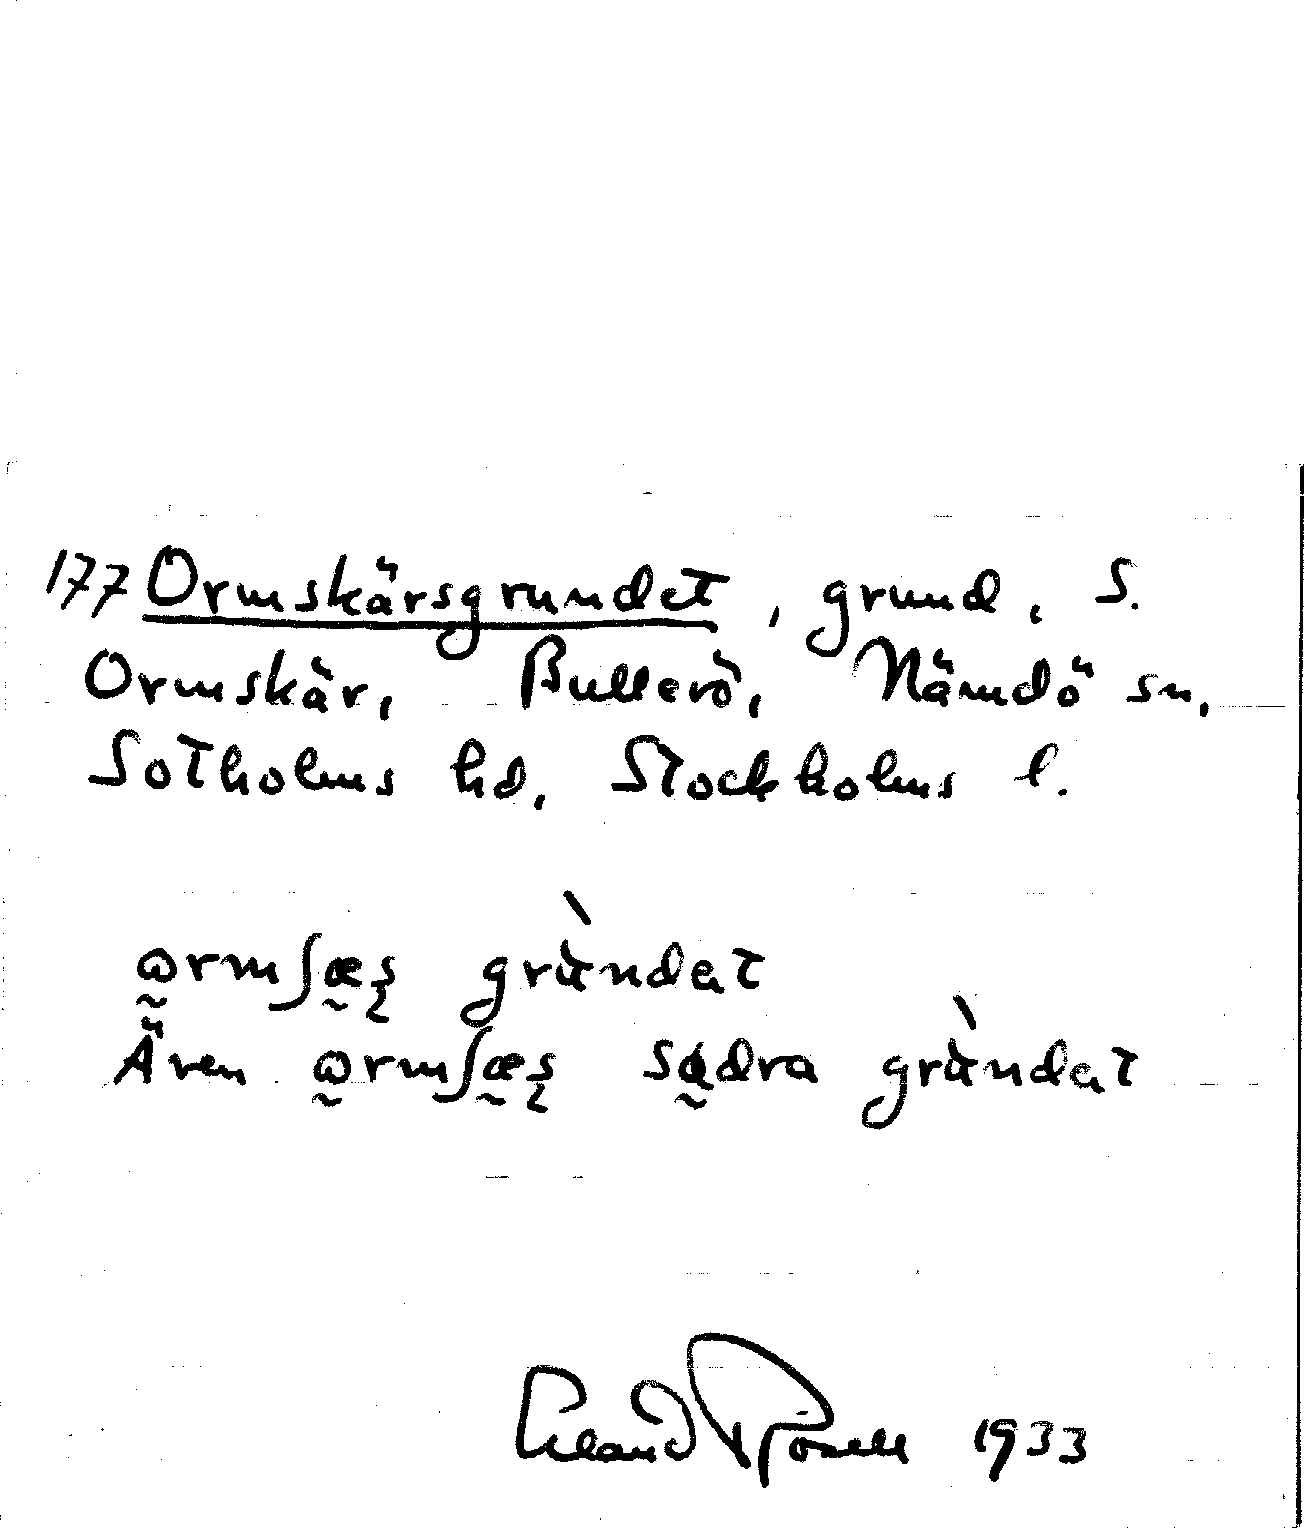 177 Ormskärsgrundet, grund, S.
Ormskär, Bullerö, Nämdö sn,
Sotholms hd, Stockholms l.
ɷrmʃæʂ grùndat
Även ɷrmʃæʂ sødra grùndat
Erland Rosell 1933